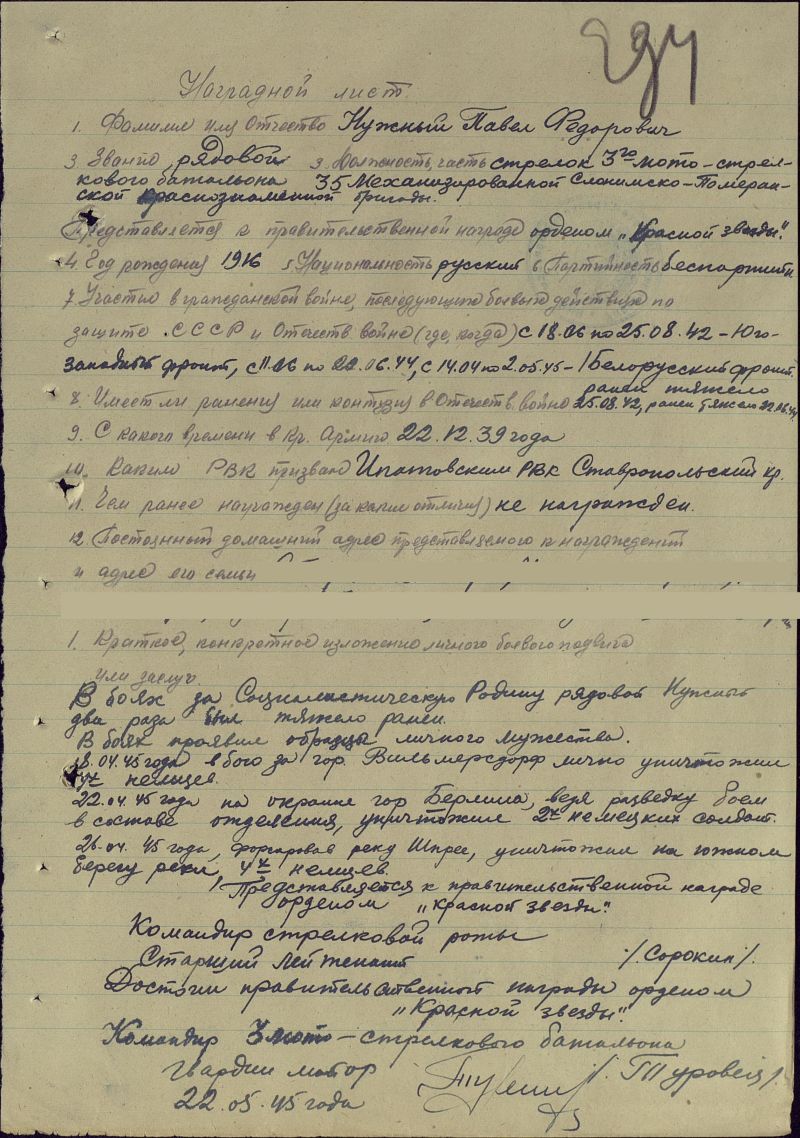 294
Наградной лист
1. Фамилия имя Отчество Нужный Павел Федорович
3 Звание рядовой 3. Должность, часть стрелок 3го мото-стрел-
кового батальона 35 Механизированной Слонимско-Померан-
ской краснознаменной бригады.
Представляется к правительственной награде орденом „Красной звезды".
4. Год рождения 1916 5 Национальность русский 6 Партийность беспартийн
7. Участие в гражданской войне, последующих боевых действиях по
защите СССР и Отечеств. войне (где, когда) с 18.06 по 25.08.42 - Юго-
западный фронт, с 11.06 по 22.06.44, с 14.04 по 2.05.45 - 1 Белорусский фронт.
8. Имеет ли ранения или контузия в Отечеств. войне ранен тяжело
25.08.42, ранен тяжело 22.06.44
9. С какого времени в Кр. Армии 22.12.39 года
10. Каким РВК призван Ипатовским РВК Ставропольский кр.
11. Чем ранее награжден (за какие отличия) не награжден.
12 Постоянный домашний адрес представляемого к награждению
и адрес его семьи
1. Краткое, конкретное изложение личного боевого подвига
или заслуг.
В боях за Социалистическую Родину рядовой Нужный
два раза был тяжело ранен.
В боях проявил образцы личного мужества.
18.04.45 года в бою за гор. Вильмерсдорф лично уничтожил
немцев.
22.04.45 года на окраине гор Берлина, ведя разведку боем
в составе отделения, уничтожил 2х немецких солдат.
26.04.45 года, форсировав реку Шпрее, уничтожил на южном
берегу реки, 4х немцев.
Представляется к правительственной награде
орденом „Красной звезды".
Командир стрелковой роты
Старший лейтенант /Сорокин/.
Достоин правительственной награды орденом
„Красной звезды".
Командир 3 мото-стрелкового батальона
Гвардии майор /Туровец/.
22.05.45 года